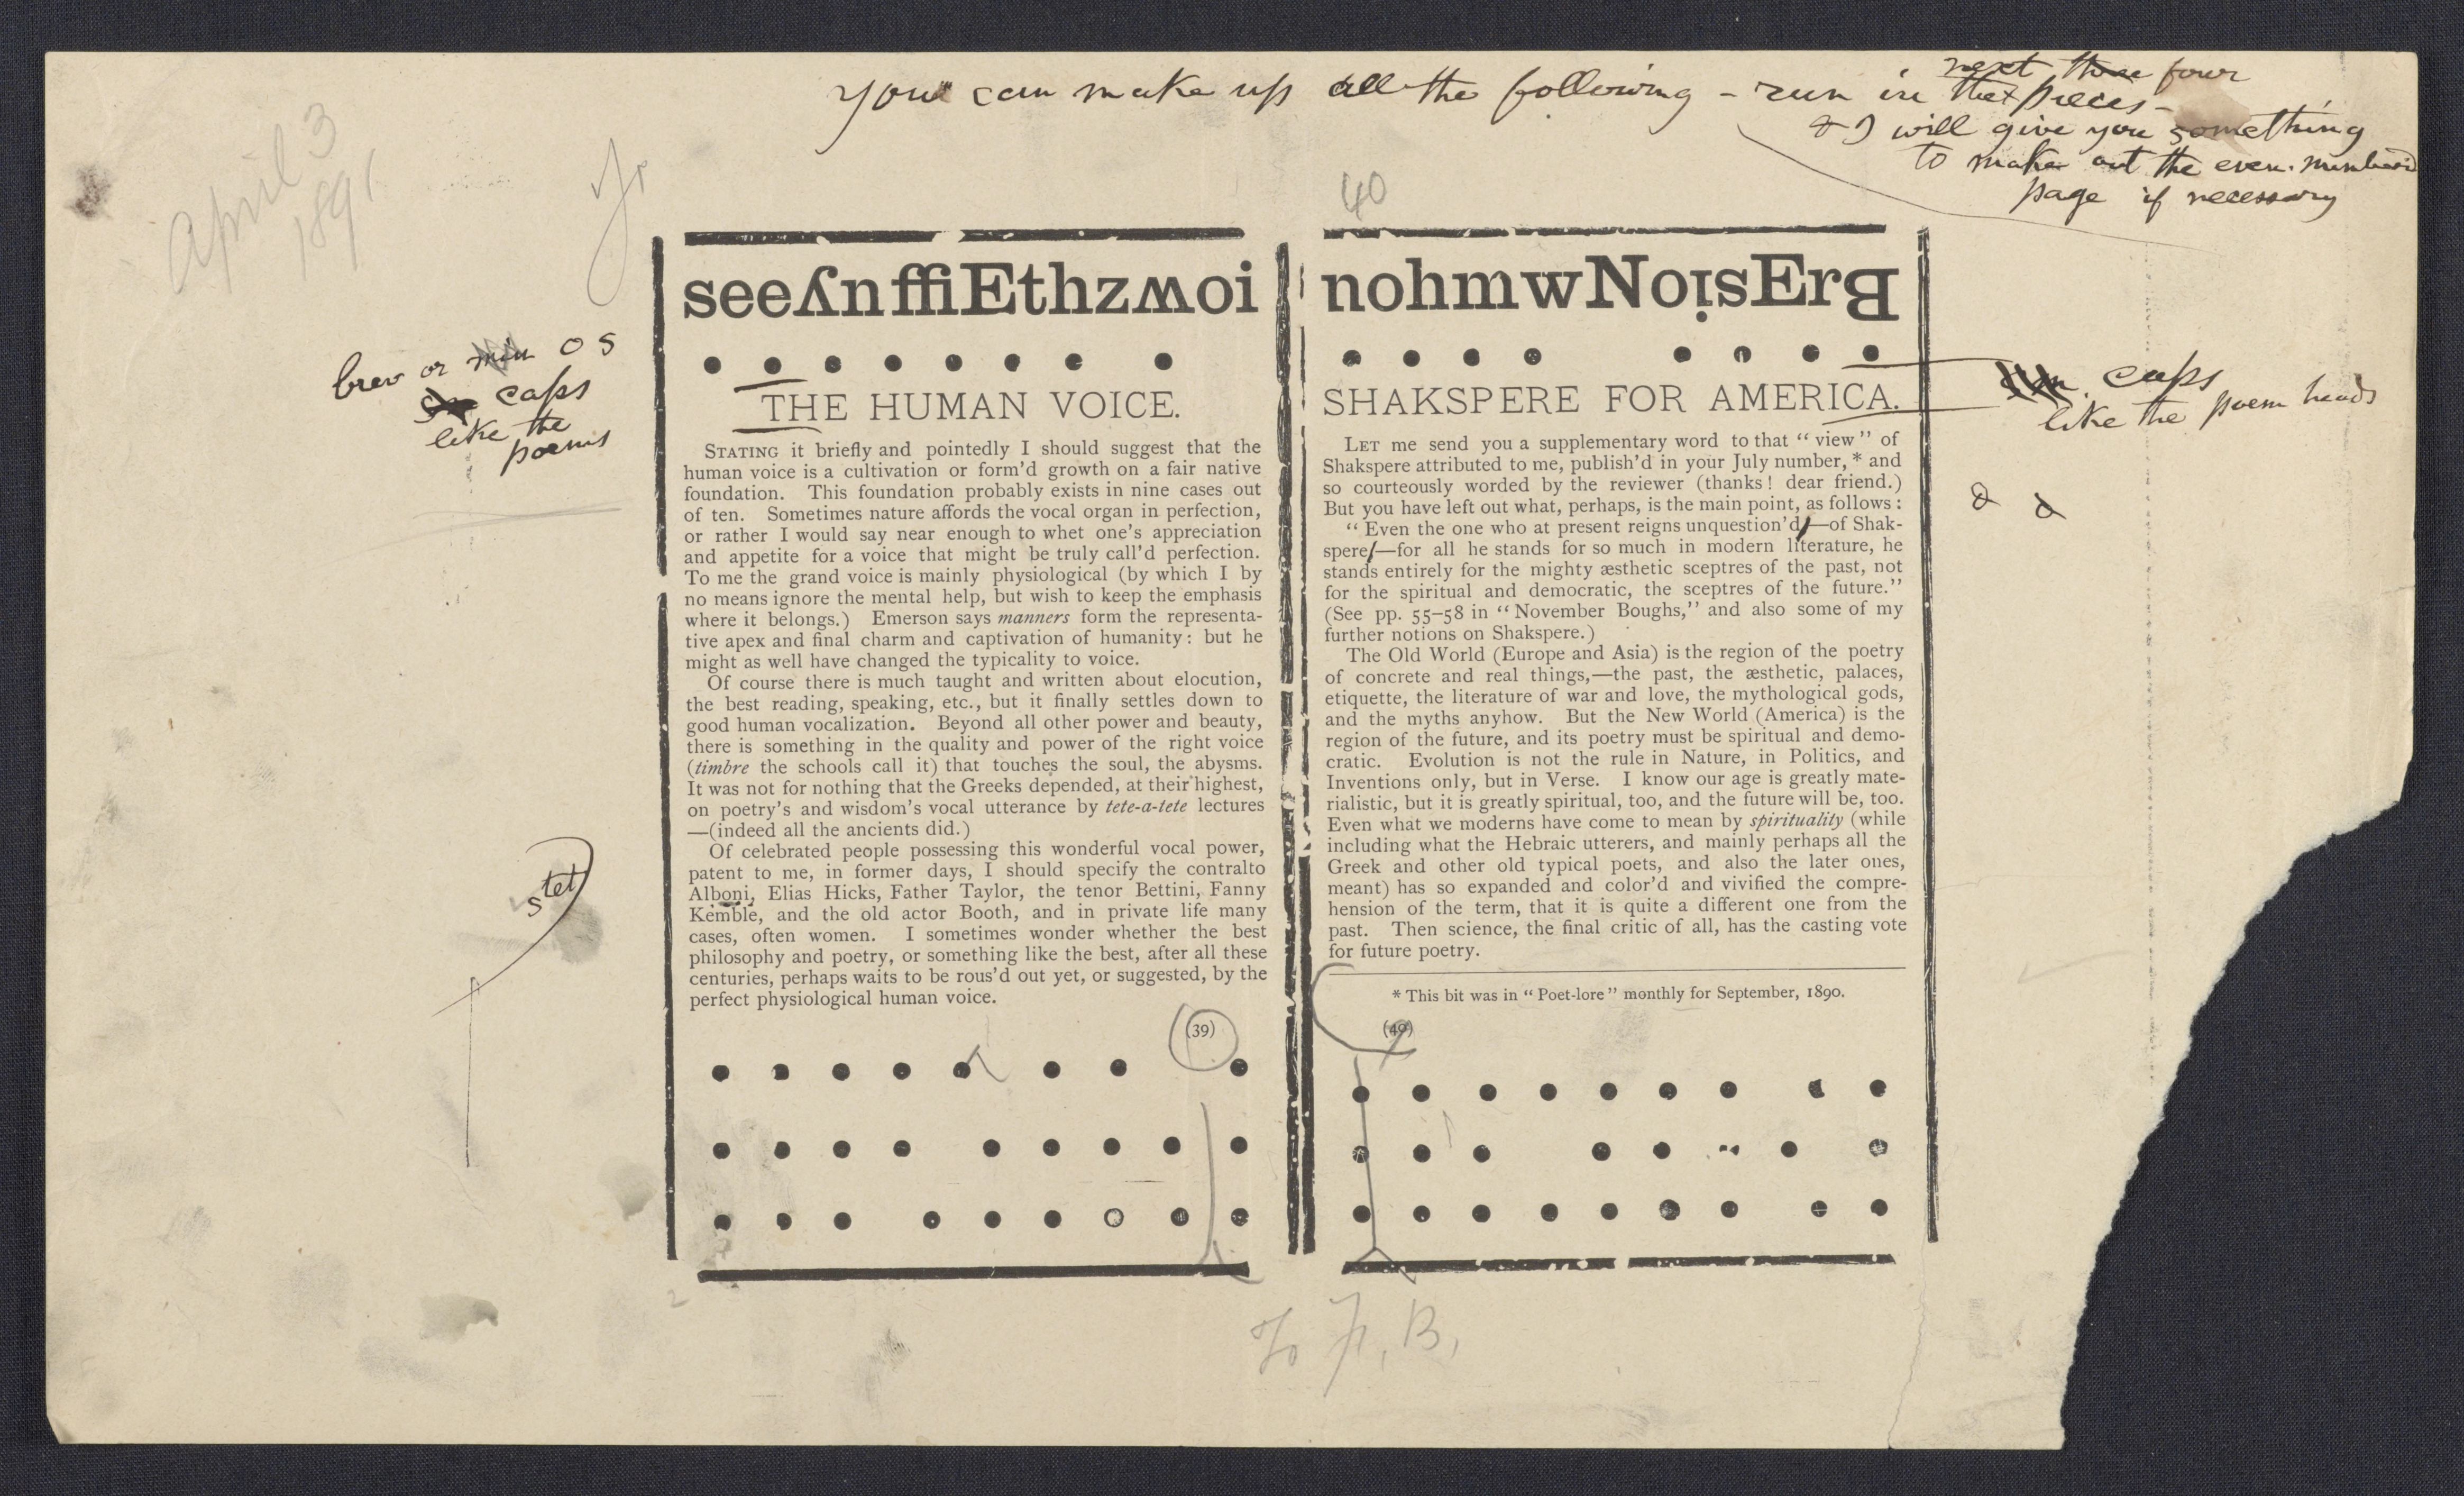 you can make up all the following - run in the
next three four
pieces -
& I will give you something
to make out the even-number'd
page if necessary
April 3
1891
40
seeʎnffiEthzʍoi
THE HUMAN VOICE.
brev or min O S
caps
like the
poems
STATING it briefly and pointedly I should suggest that the
human voice is a cultivation or form'd growth on a fair native
foundation. This foundation probably exists in nine cases out
of ten. Sometimes nature affords the vocal organ in perfection,
or rather I would say near enough to whet one's appreciation
and appetite for a voice that might be truly call'd perfection.
To me the grand voice is mainly physiological (by which I by
no means ignore the mental help, but wish to keep the emphasis
where it belongs.) Emerson says manners form the representa-
tive apex and final charm and captivation of humanity: but he
might as well have changed the typicality to voice.
Of course there is much taught and written about elocution,
the best reading, speaking, etc., but it finally settles down to
good human vocalization. Beyond all other power and beauty,
there is something in the quality and power of the right voice
(timbre the schools call it) that touches the soul, the abysms.
It was not for nothing that the Greeks depended, at their highest,
on poetry's and wisdom's vocal utterance by tete-a-tete lectures
—(indeed all the ancients did.)
Of celebrated people possessing this wonderful vocal power,
patent to me, in former days, I should specify the contralto
Alboni, Elias Hicks, Father Taylor, the tenor Bettini, Fanny
Kemble, and the old actor Booth, and in private life many
cases, often women. I sometimes wonder whether the best
philosophy and poetry, or something like the best, after all these
centuries, perhaps waits to be rous'd out yet, or suggested, by the
perfect physiological human voice.
stet
(39)
nohmwNoısErB
SHAKSPERE FOR AMERICA.
caps
like the poem heads
LET me send you a supplementary word to that “ view ” of
Shakspere attributed to me, publish'd in your July number, * and
so courteously worded by the reviewer (thanks ! dear friend.)
But you have left out what, perhaps, is the main point, as follows :
“ Even the one who at present reigns unquestion'd,—of Shak-
spere,—for all he stands for so much in modern literature, he
stands entirely for the mighty æsthetic sceptres of the past, not
for the spiritual and democratic, the sceptres of the future.”
(See pp. 55–58 in “ November Boughs,” and also some of my
further notions on Shakspere.)
The Old World (Europe and Asia) is the region of the poetry
of concrete and real things,—the past, the æsthetic, palaces,
etiquette, the literature of war and love, the mythological gods,
and the myths anyhow. But the New World (America) is the
region of the future, and its poetry must be spiritual and demo-
cratic. Evolution is not the rule in Nature, in Politics, and
Inventions only, but in Verse. I know our age is greatly mate-
rialistic, but it is greatly spiritual, too, and the future will be, too.
Even what we moderns have come to mean by spirituality (while
including what the Hebraic utterers, and mainly perhaps all the
Greek and other old typical poets, and also the later ones,
meant) has so expanded and color'd and vivified the compre-
hension of the term, that it is quite a different one from the
past. Then science, the final critic of all, has the casting vote
for future poetry.
* This bit was in “ Poet-lore ” monthly for September, 1890.
(40)
To F. B.